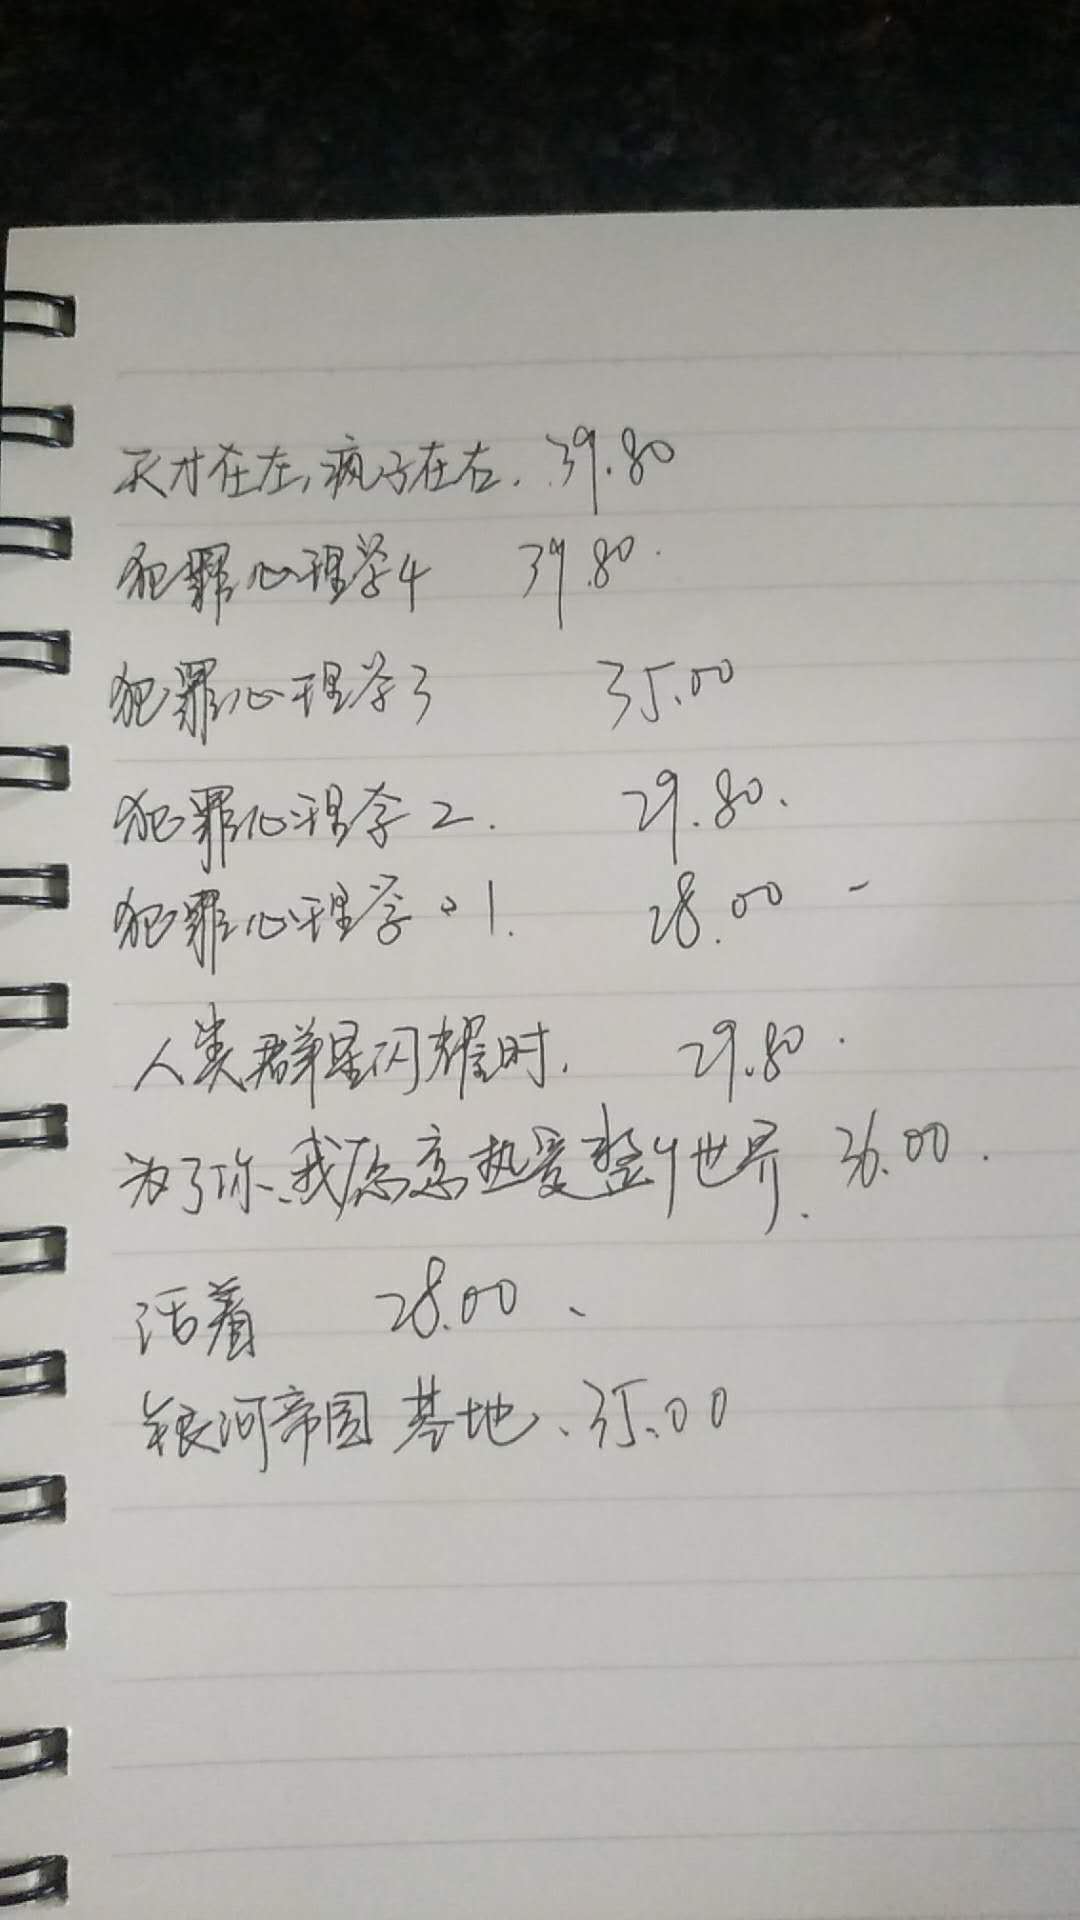 天才在左,疯子在右. 39.80
犯罪心理学4 39.80.
犯罪心理学3 35.00
犯罪心理学2. 29.80.
犯罪心理学 1. 28.00 -
人类群星闪耀时. 29.80.
为了你、我愿意热爱整个世界. 36.00.
活着 28.00、
银河帝国 基地、35.00